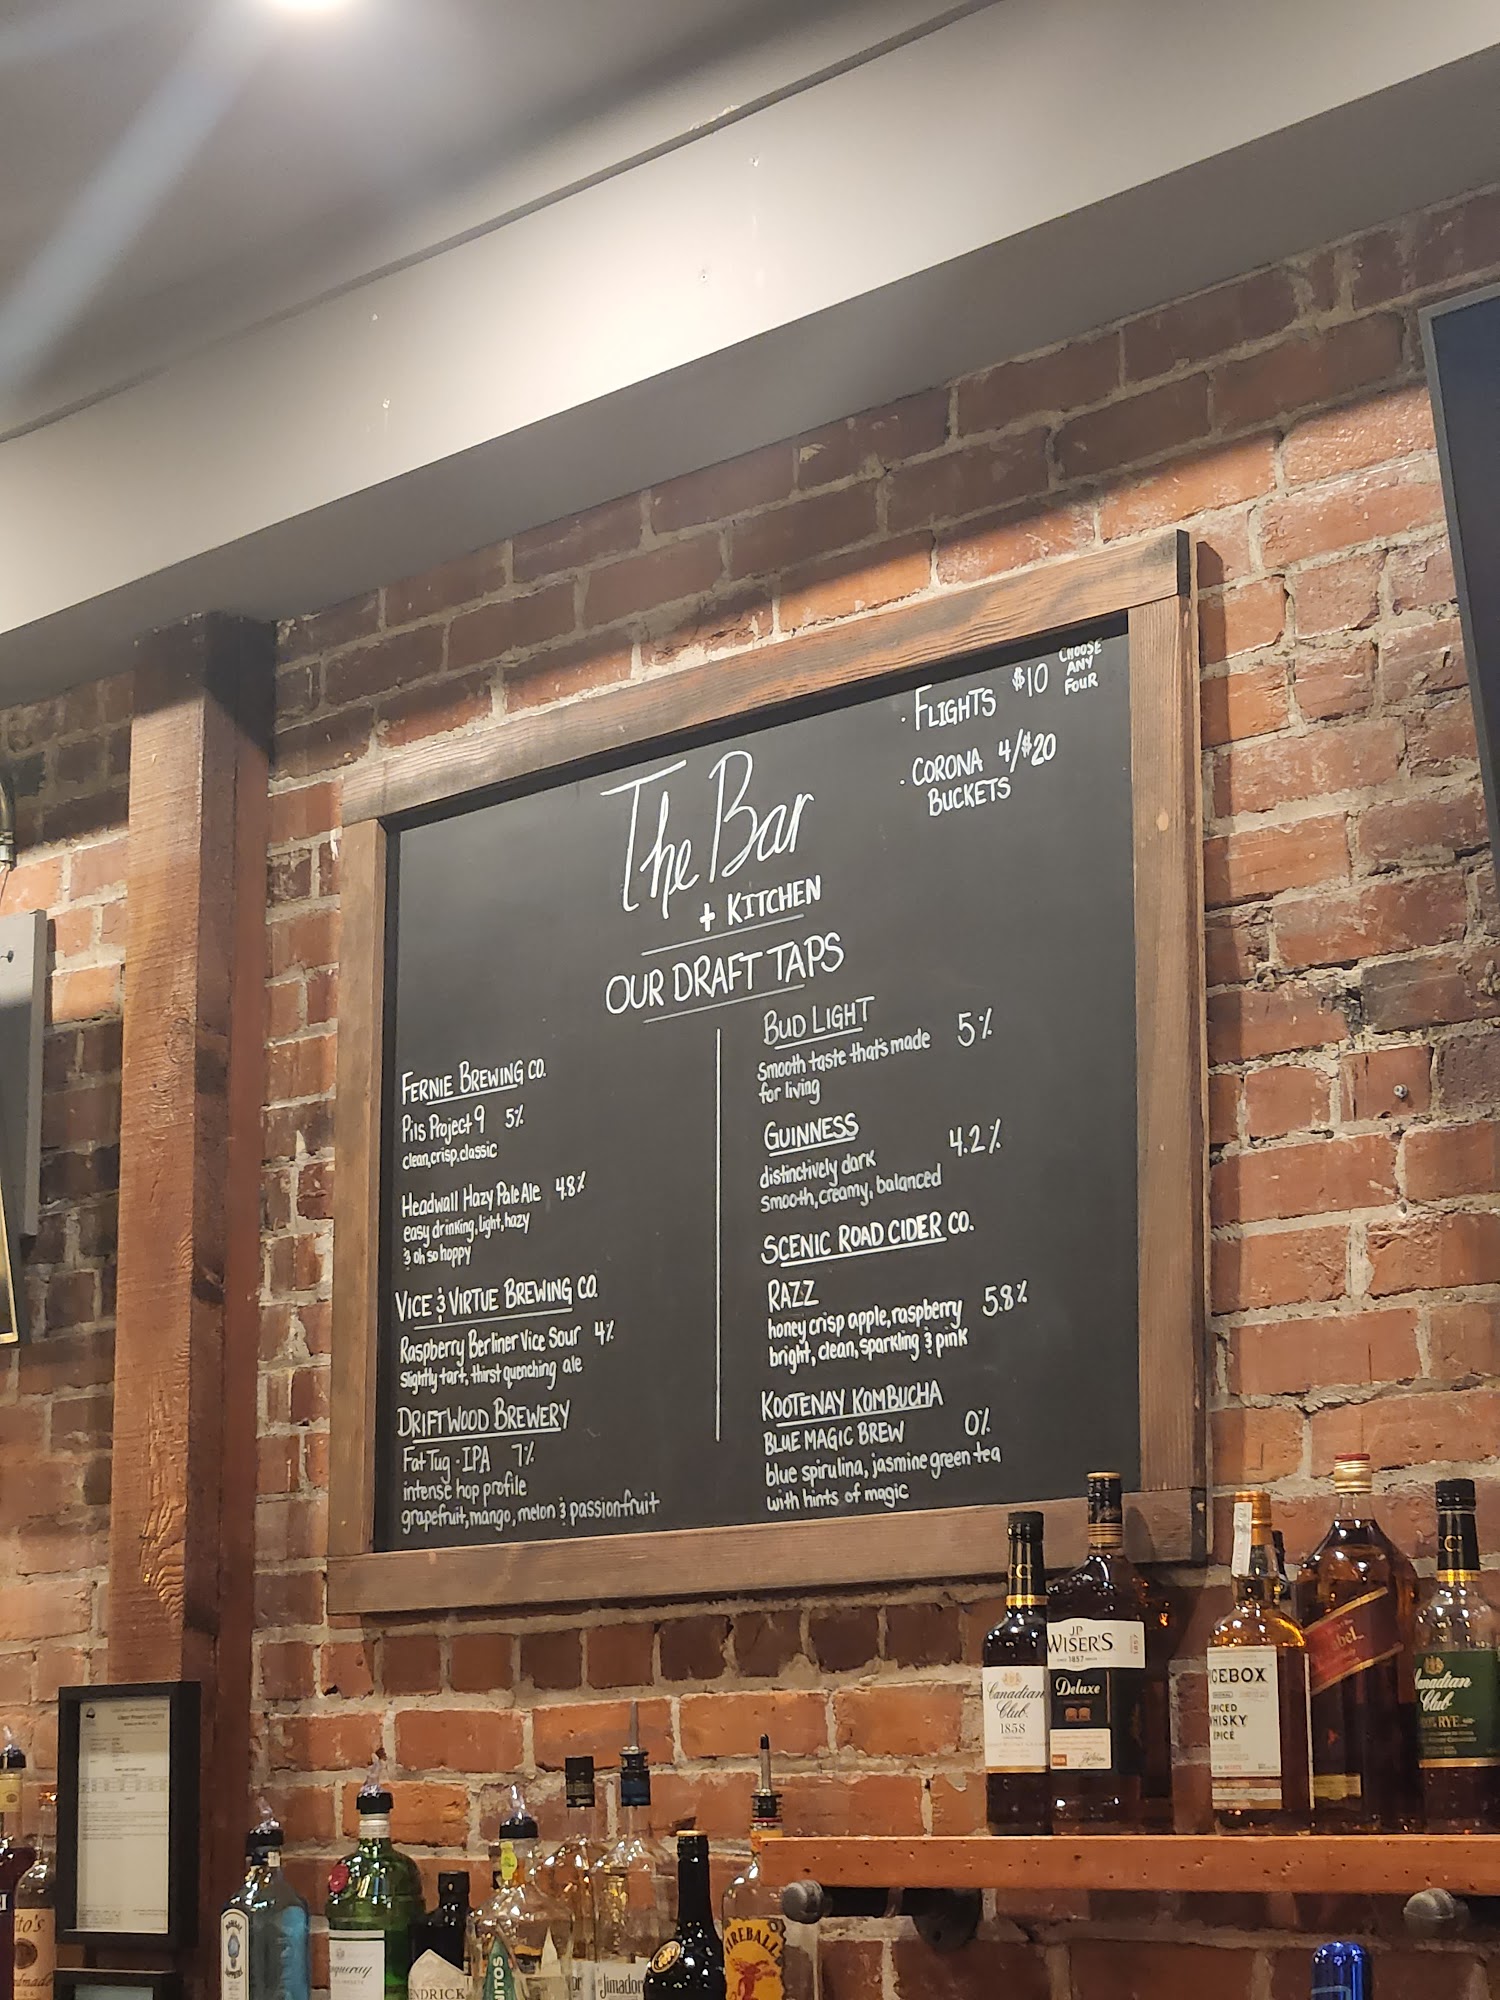 · FLIGHTS $10 CHOOSE
ANY
FOUR
· CORONA 4/$20
BUCKETS
The Bar
+ KITCHEN
OUR DRAFT TAPS
FERNIE BREWING CO.
Pils Project 9 5%
clean, crisp, classic
Headwall Hazy Pale Ale 4.8%
easy drinking, light, hazy
& oh so hoppy
VICE & VIRTUE BREWING CO.
Raspberry Berliner Vice Sour 4%
slightly tart, thirst quenching ale
DRIFTWOOD BREWERY
Fat Tug - IPA 7%
intense hop profile
grapefruit, mango, melon & passionfruit
BUD LIGHT
smooth taste that's made 5%
for living
GUINNESS
distinctively dark 4.2%
smooth, creamy, balanced
SCENIC ROAD CIDER CO.
RAZZ
honey crisp apple, raspberry 5.8%
bright, clean, sparkling & pink
KOOTENAY KOMBUCHA
BLUE MAGIC BREW 0%
blue spirulina, jasmine green tea
with hints of magic
J.P.
WISER'S
1857
Deluxe
Canadian
Club
1858
CEBOX
SPICED
WHISKY
ÉPICÉ
abel
Canadian
Club
RYE
to's
ndmade
queray
ENDRICK
NITOS
Jimador
FIREBALL